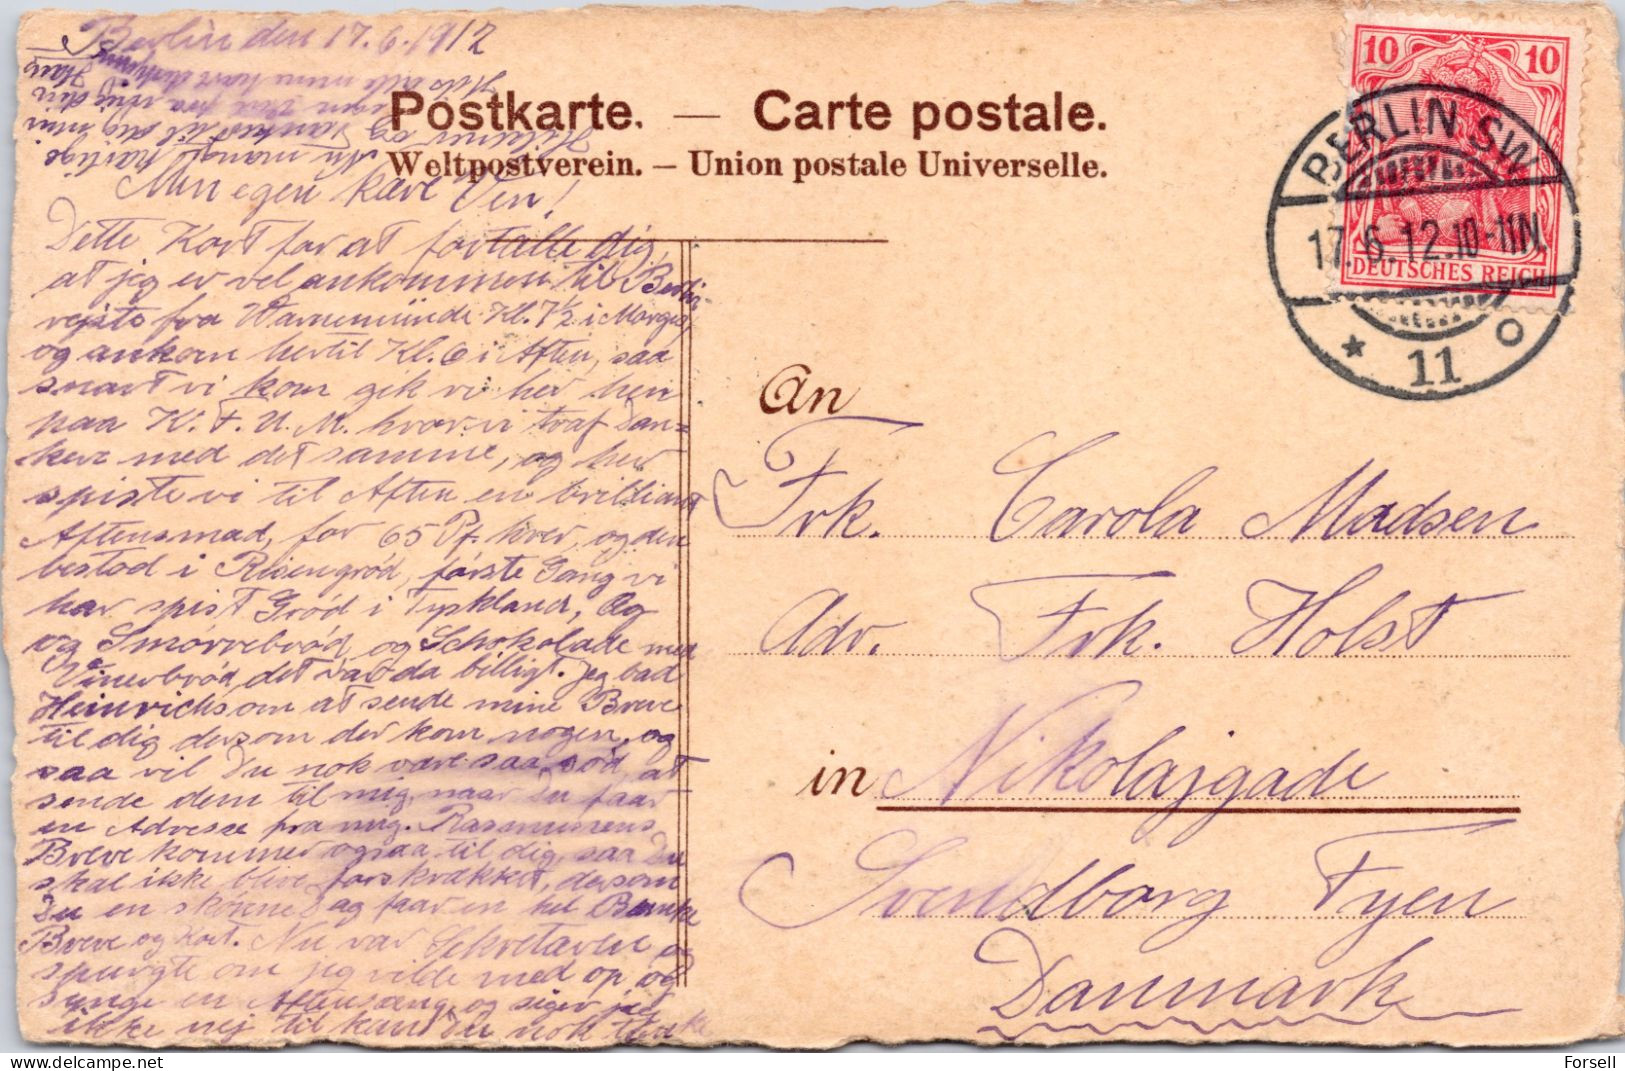 Berlin den 17.6.1912
Postkarte. — Carte postale.
Weltpostverein. — Union postale Universelle.
Min egen kære Ven!
Dette Kort for at fortælle dig,
at jeg er vel ankommen til Berlin
rejste fra Warnemünde Kl. 7½ i Morges,
og ankom hertil Kl. 6 i Aften, saa
snart vi kom gik vi her hen
paa K. F. U. M. hvor vi traf Dan=
kere med det samme, og her
spiste vi til Aften en brilliant
Aftensmad, for 65 Pf. hver, og den
bestod i Risengrød, første Gang vi
har spist Grød i Tyskland, Og
og Smørrebrød og Schokolade med
Vinerbrød det var da billigt. Jeg bad
Heinrichs om at sende mine Breve
til dig dersom der kom nogen, og
saa vil Du nok være saa sød, at
sende dem til mig, naar Du faar
en Adresse fra mig. Rasmussens
Breve kommer ogsaa til dig, saa Du
skal ikke blive forskrækket, dersom
Du en skønne Dag faar en hel Bunke
Breve og Kort. Nu var Sekretæren og
spurgte om jeg vilde med op og
synge en Aftensang, og siger jeg
ikke nej til kan Du nok tænke
Nu mange
Hilsner og Tanker til dig min
egen Ven fra mig din
Hans
10 10
DEUTSCHES REICH
BERLIN SW
17.6.12.10-11N.
* 11 o
An
Frk. Carola Madsen
Adr. Frk. Holst
in Nikolajgade
Svendborg Fyen
Danmark
Forsell